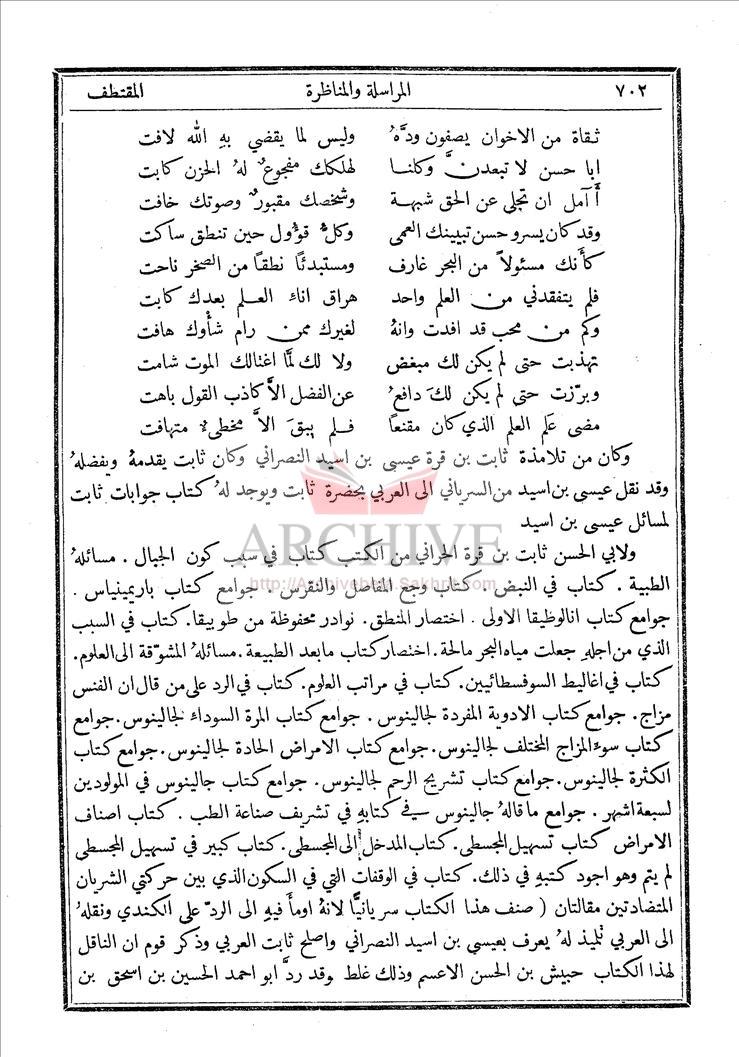 ٧٠٢ المراسلة والمناظرة المقتطف
ثقاة من الاخوان يصفون ودَّهُ وليس لما يقضي بهِ الله لافت
ابا حسن لا تبعدنَّ وكلنا لهلكك مفجوعٌ لهُ الحزن كابت
أَآمل ان تجلى عن الحق شبهة وشخصك مقبورٌ وصوتك خافت
وقد كان يسرو حسن تبيينك العمى وكلُّ قؤول حين تنطق ساكت
كأَنك مسئولاً من البحر غارف ومستبدئًا نطقًا من الصخر ناحت
فلم يتفقدني من العلم واحد هراق اناء العلم بعدك كابت
وكم من محب قد افدت وانهُ لغيرك ممن رام شأوك هافت
تهذبت حتى لم يكن لك مبغض ولا لك لمَّا اغتالك الموت شامت
وبرّزت حتى لم يكن لكَ دافعُ عن الفضل الأكاذب القول باهت
مضى عَلم العلم الذي كان مقنعًا فلم يبقَ الاَّ مخطىء متهافت
وكان من تلامذة ثابت بن قرة عيسى بن اسيد النصراني وكان ثابت يقدمهُ ويفضلهُ
وقد نقل عيسى بن اسيد من السرياني الى العربي بحضرة ثابت ويوجد لهُ كتاب جوابات ثابت
لمسائل عيسى بن اسيد
ولابي الحسن ثابت بن قرة الحراني من الكتب كتاب في سبب كون الجبال . مسائلهُ
الطبية . كتاب في النبض . كتاب وجع المفاصل والنقرس . جوامع كتاب باريمينياس .
جوامع كتاب انالوطيقا الاولى . اختصار المنطق . نوادر محفوظة من طوبيقا . كتاب في السبب
الذي من اجلهِ جعلت مياه البحر مالحة . اختصار كتاب ما بعد الطبيعة . مسائلهُ المشوّقة الى العلوم .
كتاب في اغاليط السوفسطائيين . كتاب في مراتب العلوم . كتاب في الرد على من قال ان النفس
مزاج . جوامع كتاب الادوية المفردة لجالينوس . جوامع كتاب المرة السوداء لجالينوس . جوامع
كتاب سوء المزاج المختلف لجالينوس . جوامع كتاب الامراض الحادة لجالينوس . جوامع كتاب
الكثرة لجالينوس . جوامع كتاب تشريح الرحم لجالينوس . جوامع كتاب جالينوس في المولودين
لسبعة اشهر . جوامع ما قالهُ جالينوس في كتابهِ في تشريف صناعة الطب . كتاب اصناف
الامراض كتاب تسهيل المجسطي . كتاب المدخل الى المجسطي . كتاب كبير في تسهيل المجسطي
لم يتم وهو اجود كتبهِ في ذلك . كتاب في الوقفات التي في السكون الذي بين حركتي الشريان
المتضادتين مقالتان ( صنف هذا الكتاب سريانيًّا لانهُ اومأ فيهِ الى الردّ على الكندي ونقلهُ
الى العربي تلميذ لهُ يعرف بعيسى بن اسيد النصراني واصلح ثابت العربي وذكر قوم ان الناقل
لهذا الكتاب حبيش بن الحسن الاعسم وذلك غلط وقد ردَّ ابو احمد الحسين بن اسحق بن
ARCHIVE
http://Archivebeta.Sakhrit.com